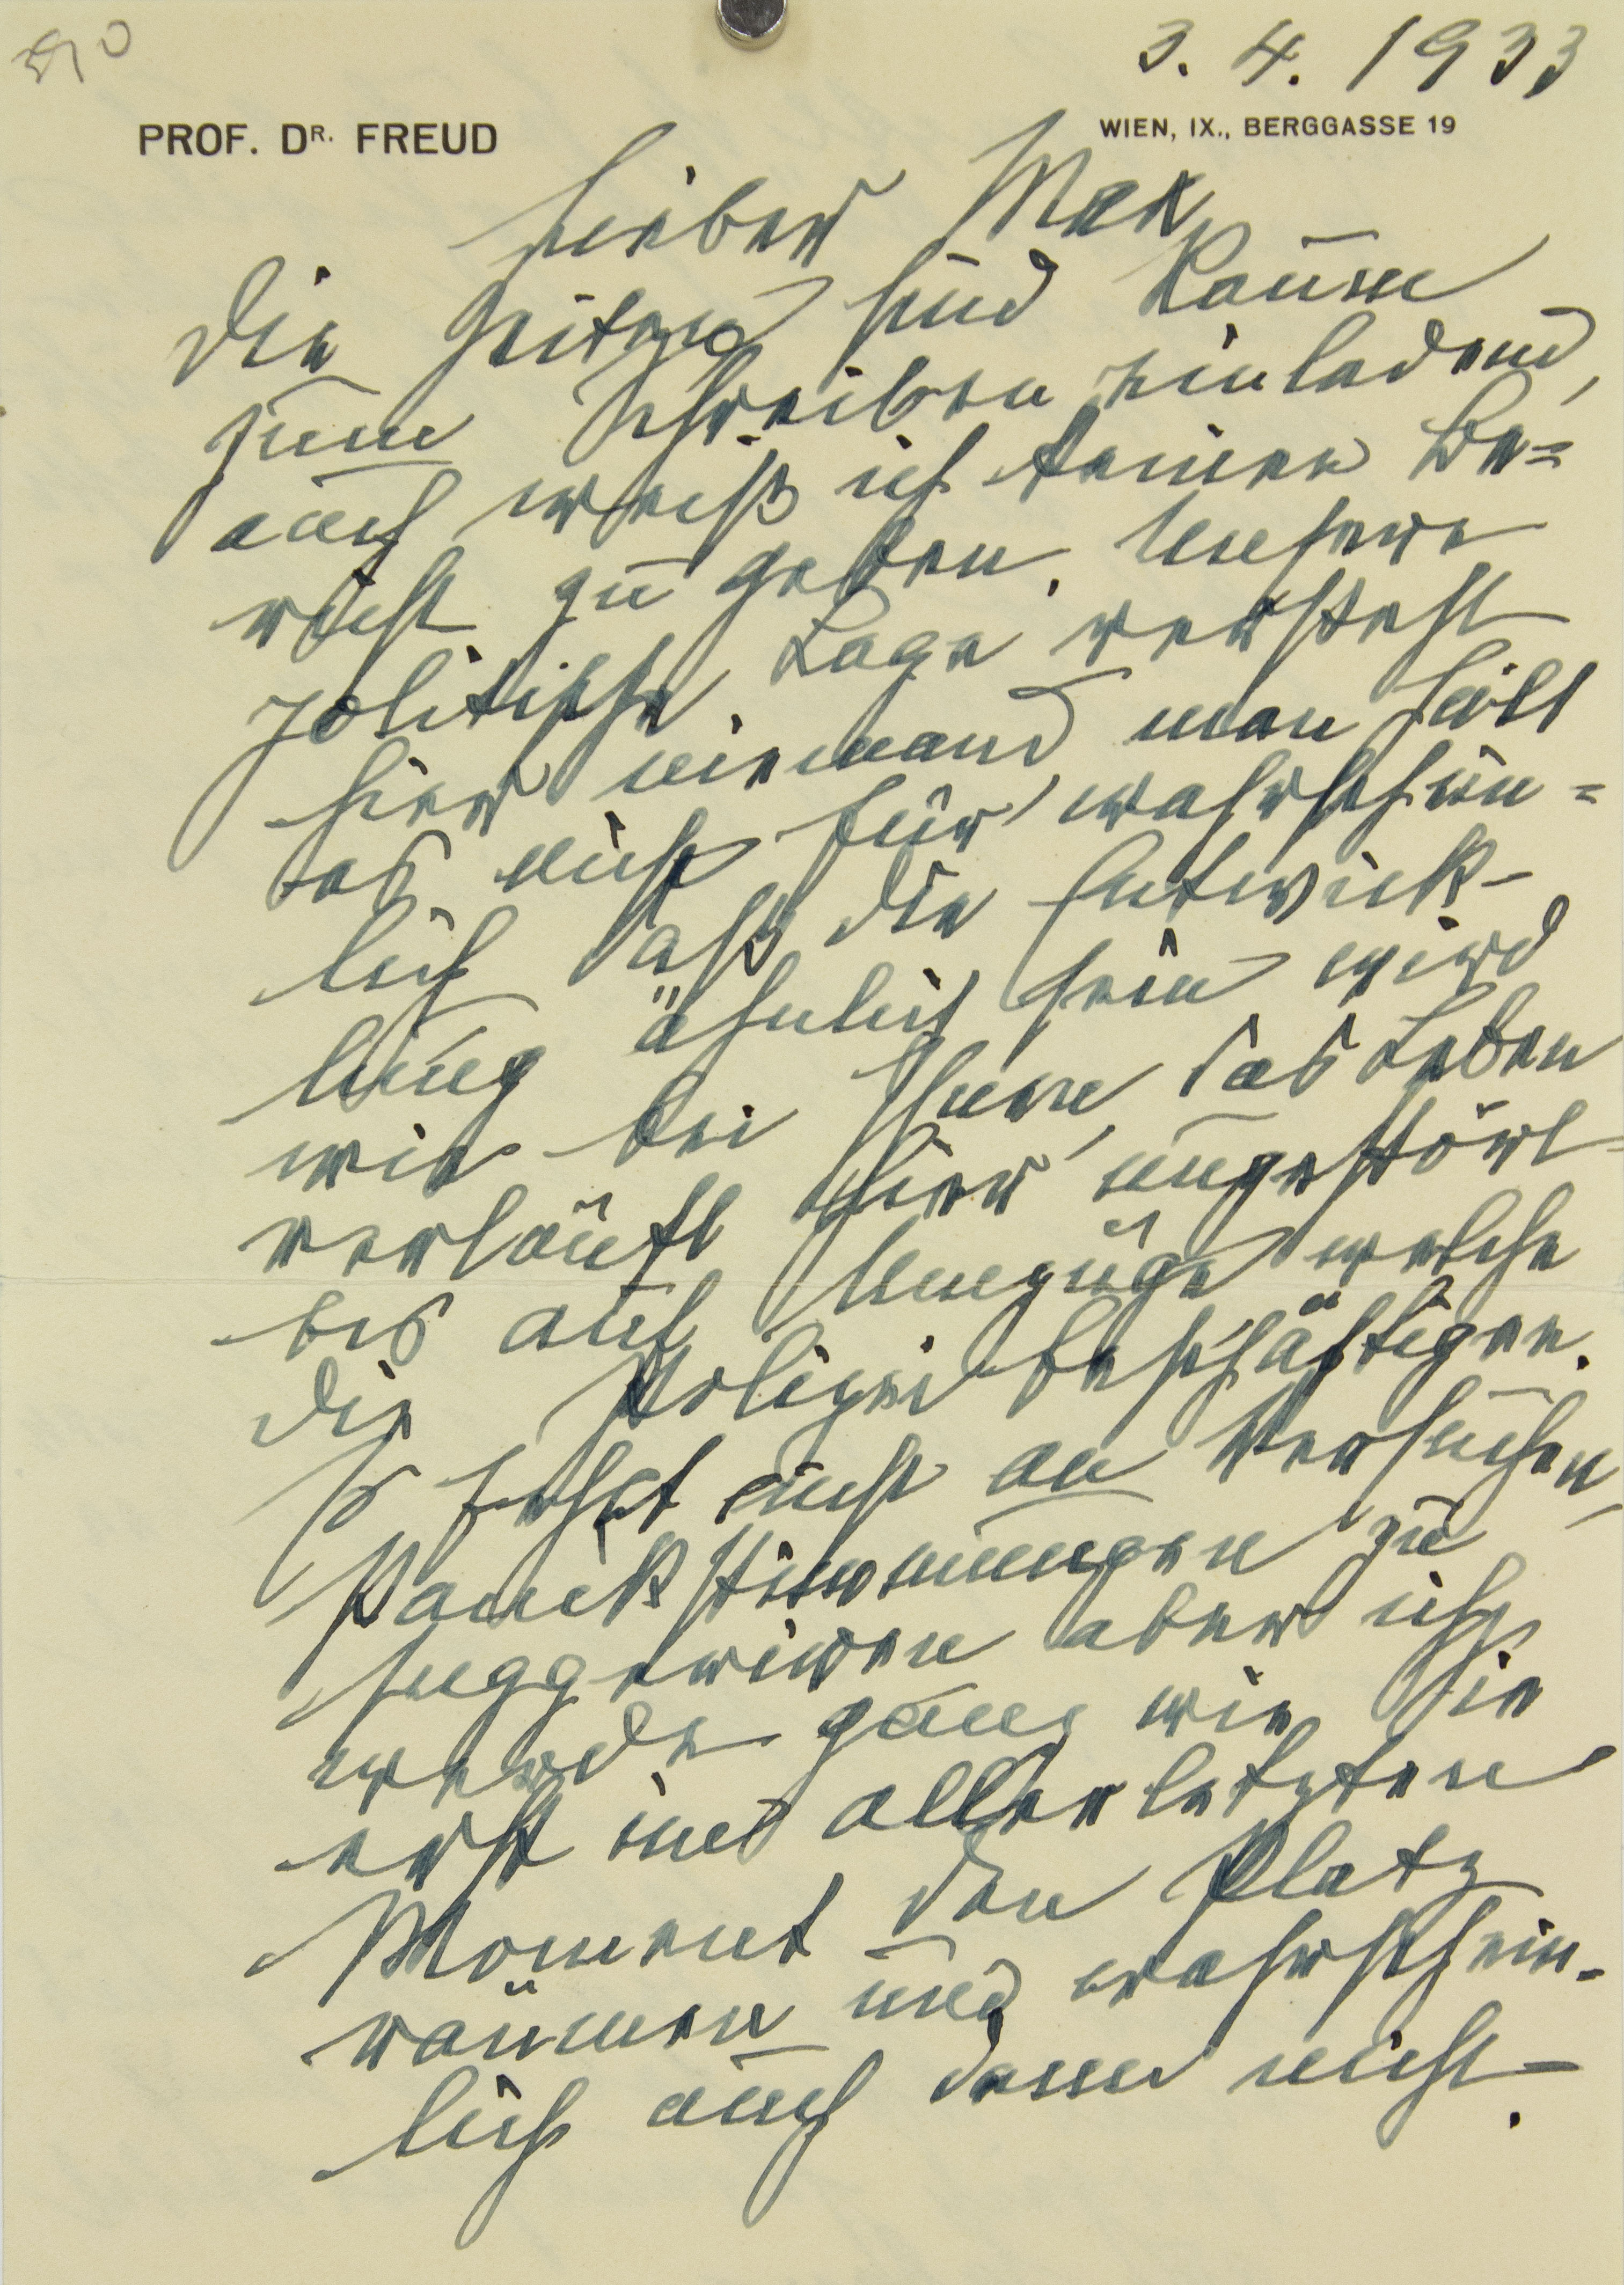 390
3. 4. 1933
PROF. DR. FREUD
WIEN, IX., BERGGASSE 19
Lieber Max
Die Zeiten sind kaum
zum Schreiben einladend,
auch weiß ich keinen Be=
richt zu geben. Unsere
politische Lage versteht
hier niemand, man hält
es nicht für wahrschein=
lich daß die Entwick-
lung ähnlich sein wird
wie bei Ihnen, das Leben
verläuft hier ungestört
bis auf Umzüge welche
die Polizei beschäftigen.
Es fehlt nicht an Versuchen,
Panikstimmungen zu
suggeriren aber ich
werde ganz wie Sie
erst im allerletzten
Moment den Platz
räumen und wahrschein-
lich auch dann nicht.